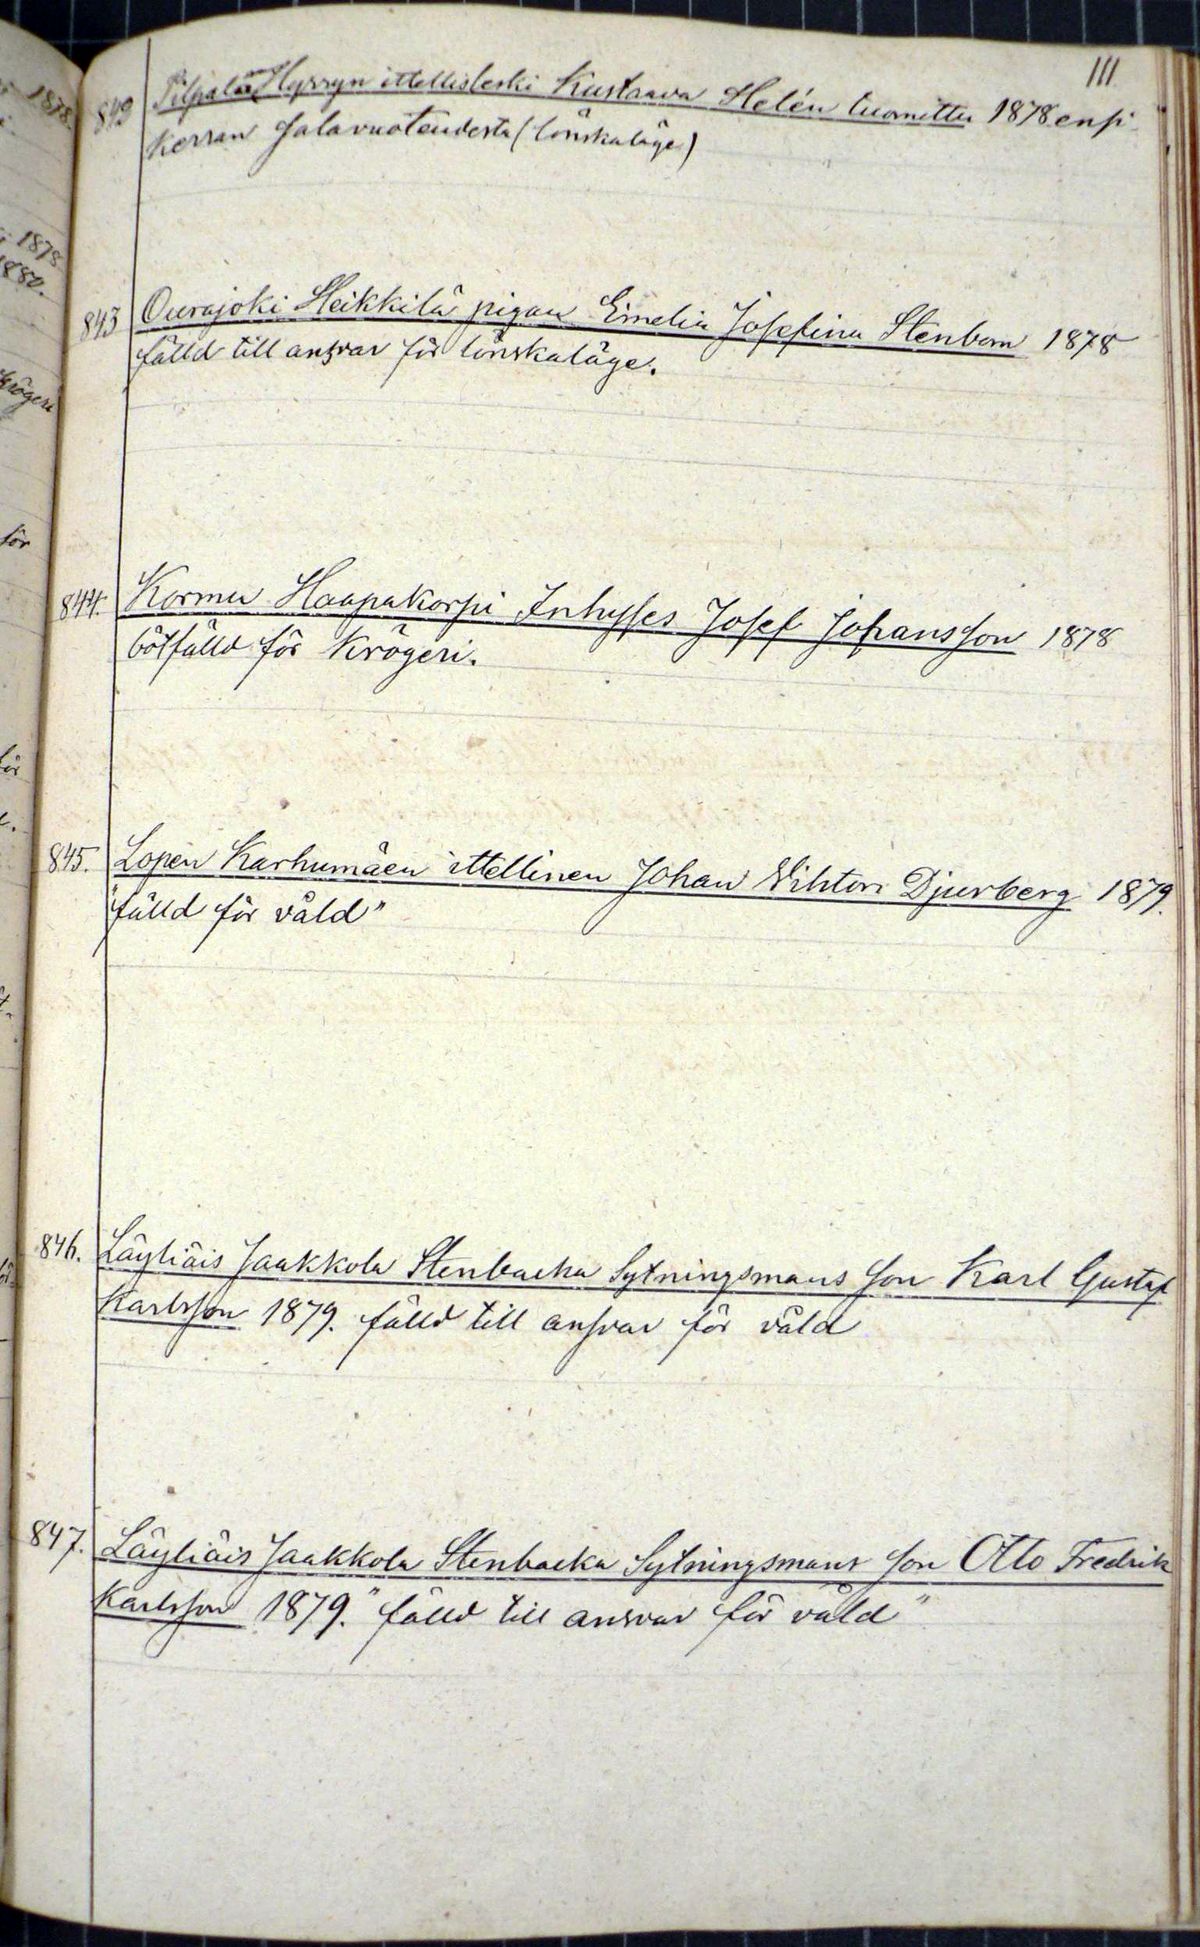 111
843 Pilpalan Hyrsyn ittellisleski Kustaava Helén tuomittu 1878 ensi
kerran salavuoteudesta (lönskaläge)
843 Ourajoki Heikkilä pigan Emelia Josefina Stenbom 1878
fälld till ansvar för lönskaläge.
844. Kormu Haapakorpi Inhyses Josef Johansson 1878
bötfälld för Krögeri.
845. Lopen Karhumäen ittellinen Johan Vihtori Djurberg 1879.
"fälld för våld"
846. Läyliäis Jaakkola Stenbacka Sytningsmans son Karl Gustaf
Karlsson 1879. fälld till ansvar för våld
847. Läyliäis Jaakkola Stenbacka Sytningsmans son Otto Fredrik
Karlsson 1879. "fälld till ansvar för våld"